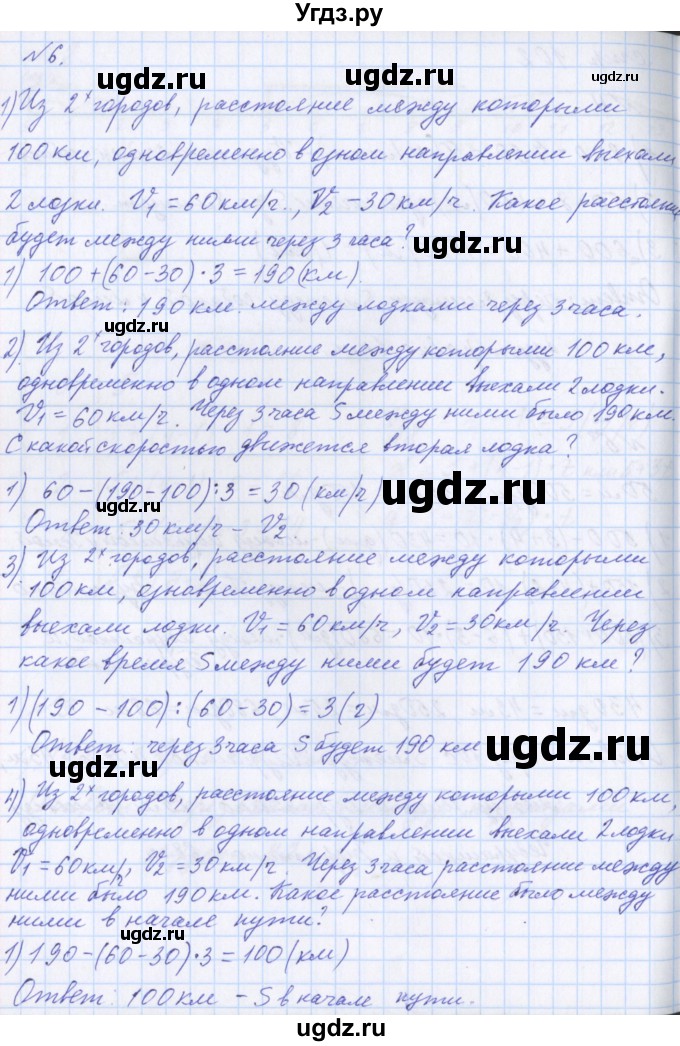 Угдз.ру
№6.
ugdz.ru ugdz.ru
1) Из 2х городов, расстояние между которыми
100 км, одновременно в одном направлении выехали
2 лодки. V1 = 60 км/ч., V2 – 30 км/ч. Какое расстояние
ugdz.ru
будет между ними через 3 часа?
1) 100 + (60 – 30) · 3 = 190 (км).
Ответ: 190 км. между лодками через 3 часа.
ugdz.ru
2) Из 2х городов, расстояние между которыми 100 км,
одновременно в одном направлении выехали 2 лодки.
V1 = 60 км/ч. Через 3 часа S между ними было 190 км.
ugdz.ru
С какой скоростью движется вторая лодка?
1) 60 – (190 – 100) : 3 = 30 (км/ч)
ugdz.ru
Ответ: 30 км/ч – V2.
ugdz.ru
3) Из 2х городов, расстояние между которыми
100 км, одновременно в одном направлении
выехали лодки. V1 = 60 км/ч, V2 = 30 км/ч. Через
ugdz.ru
какое время S между ними будет 190 км?
1) (190 – 100) : (60 – 30) = 3 (ч)
Ответ: через 3 часа S будет 190 км
ugdz.ru
ugdz.ru
4) Из 2х городов, расстояние между которыми 100 км,
одновременно в одном направлении выехали 2 лодки
V1 = 60 км/ч, V2 = 30 км/ч Через 3 часа расстояние между
ugdz.ru
ними было 190 км. Какое расстояние было между
ними в начале пути?
1) 190 – (60 – 30) · 3 = 100 (км)
ugdz.ru
Ответ: 100 км – S в начале пути.
ugdz.ru